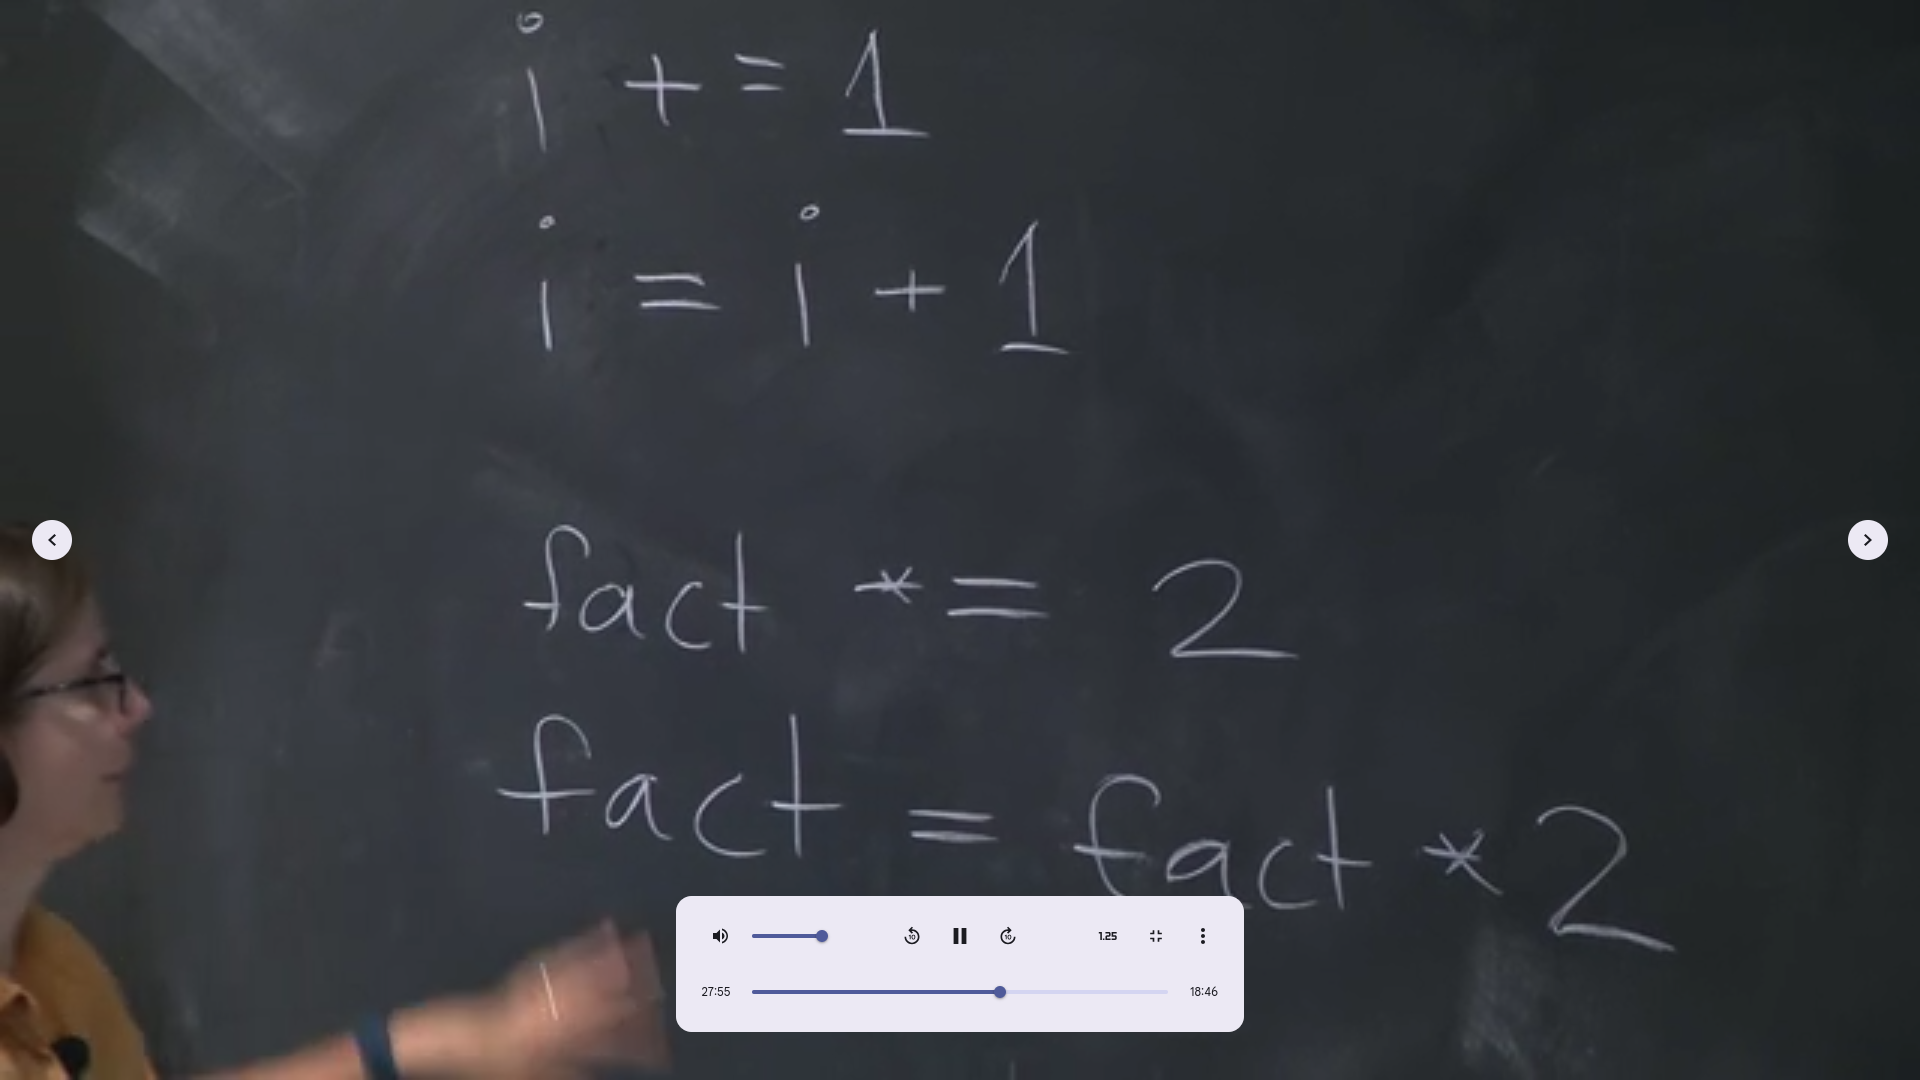 i += 1
i = i + 1
fact *= 2
fact = fact * 2
10
10
1.25
27:55
18:46